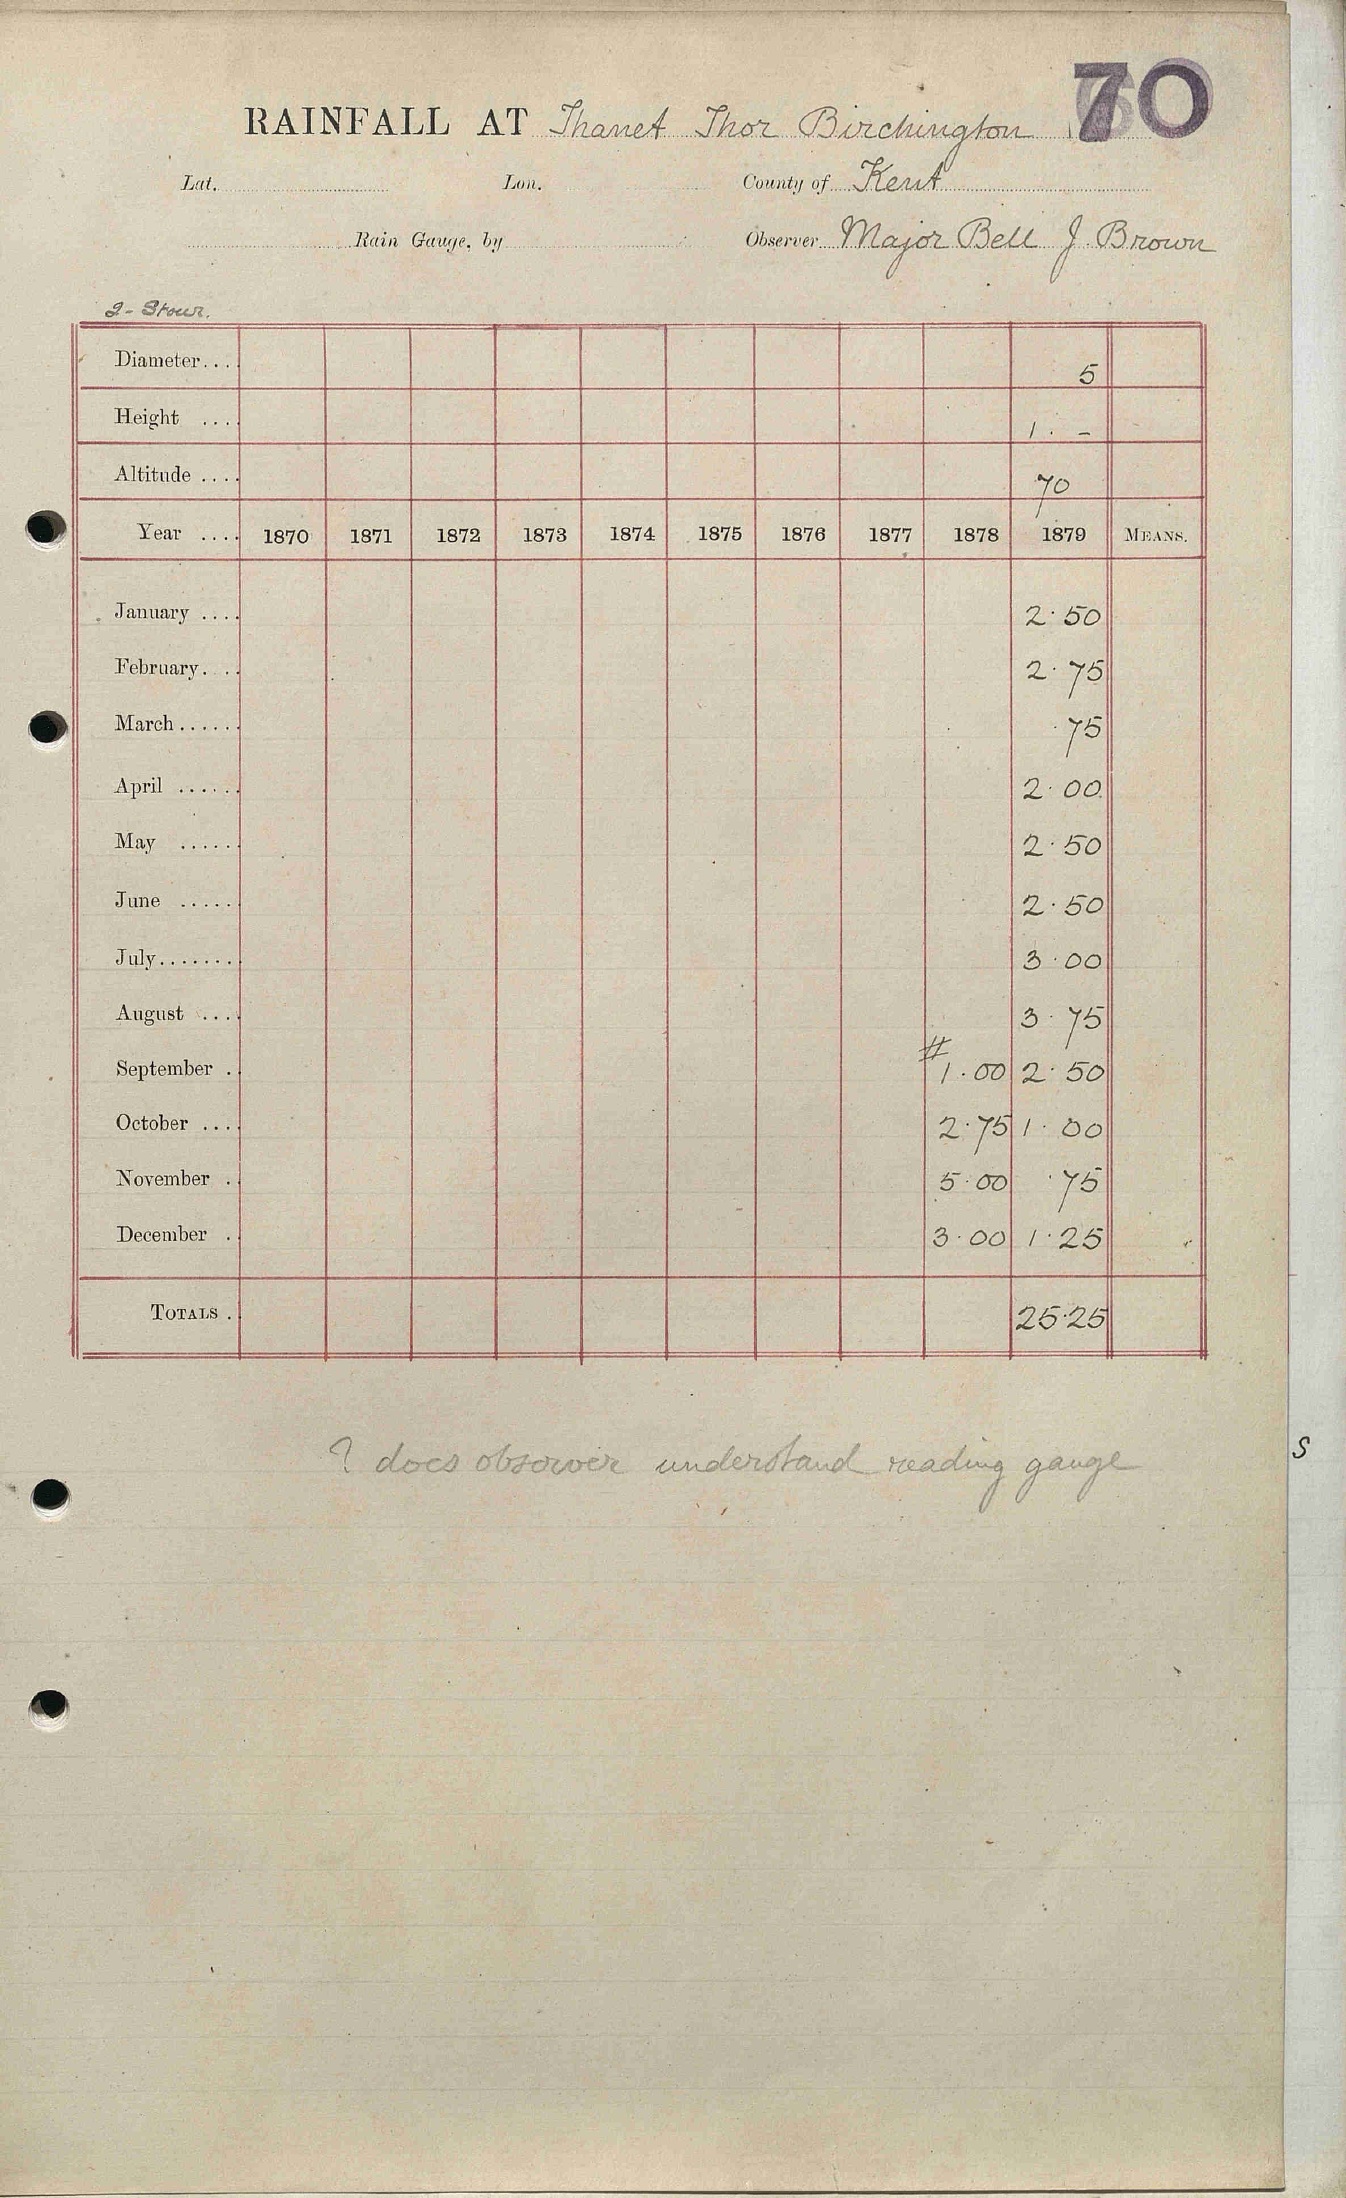 70
RAINFALL AT Thanet Thor Birchington
Lat. Lon. County of Kent
Rain Gauge, by Observer Major Bell J. Brown
2 - Stour.
Diameter.... 5
Height .... 1 . -
Altitude .... 70
Year .... 1870 1871 1872 1873 1874 1875 1876 1877 1878 1879 MEANS.
January .... 2·50
February.... 2·75
March...... ·75
April ...... 2·00
May ...... 2·50
June ...... 2·50
July........ 3·00
August .... 3·75
September . # 1·00 2·50
October .... 2·75 1·00
November . 5·00 ·75
December . 3·00 1·25
TOTALS . 25·25
? does observer understand reading gauge
s